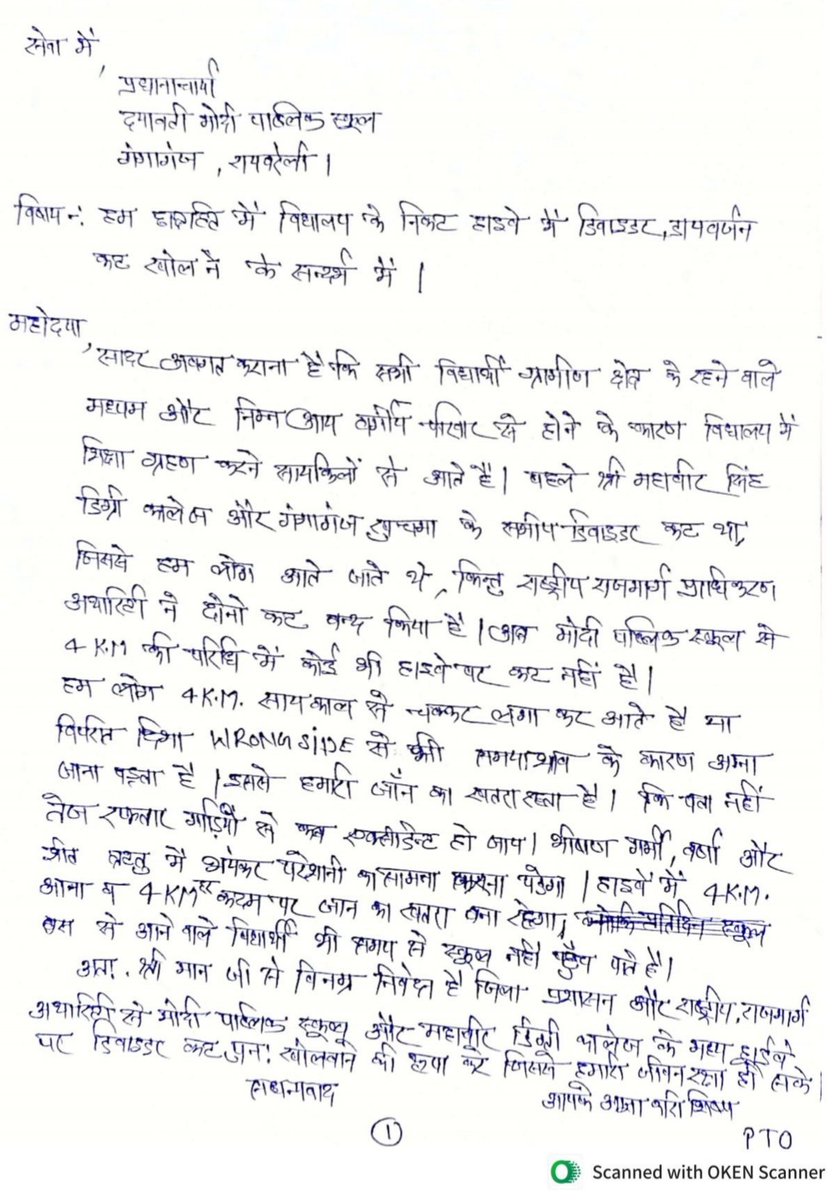 सेवा में,
प्रधानाचार्या
दयावती मोदी पाब्लिक स्कूल
गंगागंज, रायबरेली।
विषय-: हम छात्रहित में विद्यालय के निकट हाइवे में डिवाइडर, डायवर्जन
कट खोलने के सन्दर्भ में।
महोदया,
सादर अवगत कराना है कि सभी विद्यार्थी ग्रामीण क्षेत्र के रहने वाले
मध्यम और निम्न आय वर्गीय परिवार से होने के कारण विद्यालय में
शिक्षा ग्रहण करने सायकिलों से आते है। पहले श्री महावीर सिंह
डिग्री कालेज और गंगागंज के समीप डिवाइडर कट था,
जिससे हम लोग आते जाते थे, किन्तु राष्ट्रीय राजमार्ग प्राधिकरण
अथारिटी ने दोनो कट बन्द किया है। अब मोदी पब्लिक स्कूल से
4 K.M की परिधि में कोई भी हाइवे पर कट नहीं है।
हम लोग 4 K.M. से चक्कर लगा कर आते है या
विपरित दिशा WRONG SIDE से भी समयाभाव के कारण आना
जाना पड़ता है। इससे हमारी जाँन का खतरा रहता है। कि पता नहीं
तेज रफतार गाड़ियों से कब एक्सीडेन्ट हो जाय। भीषण गर्मी, वर्षा और
शीत ऋतु में भयंकर परेशानी का सामना करना पड़ेगा। हाइवें में 4 K.M.
आना व 4 KM कदम पर जान का खतरा बना रहेगा,
बस से आने वाले विद्यार्थी भी समय से स्कूल नही पहुँच पाते है।
अतः श्री मान जी से विनम्र निवेदन है जिला प्रशासन और राष्ट्रीय, राजमार्ग
अथारिटी से मोदी पाब्लिक स्कूल और महावीर डिग्री कालेज के मध्य हाईवे
पर डिवाइडर कट पुन: खोलवाने की कृपा करे जिससे हमारी जीवन रक्षा हो सके।
सधन्यवाद
आपके आज्ञाकारी शिष्य
1
PTO
Scanned with OKEN Scanner